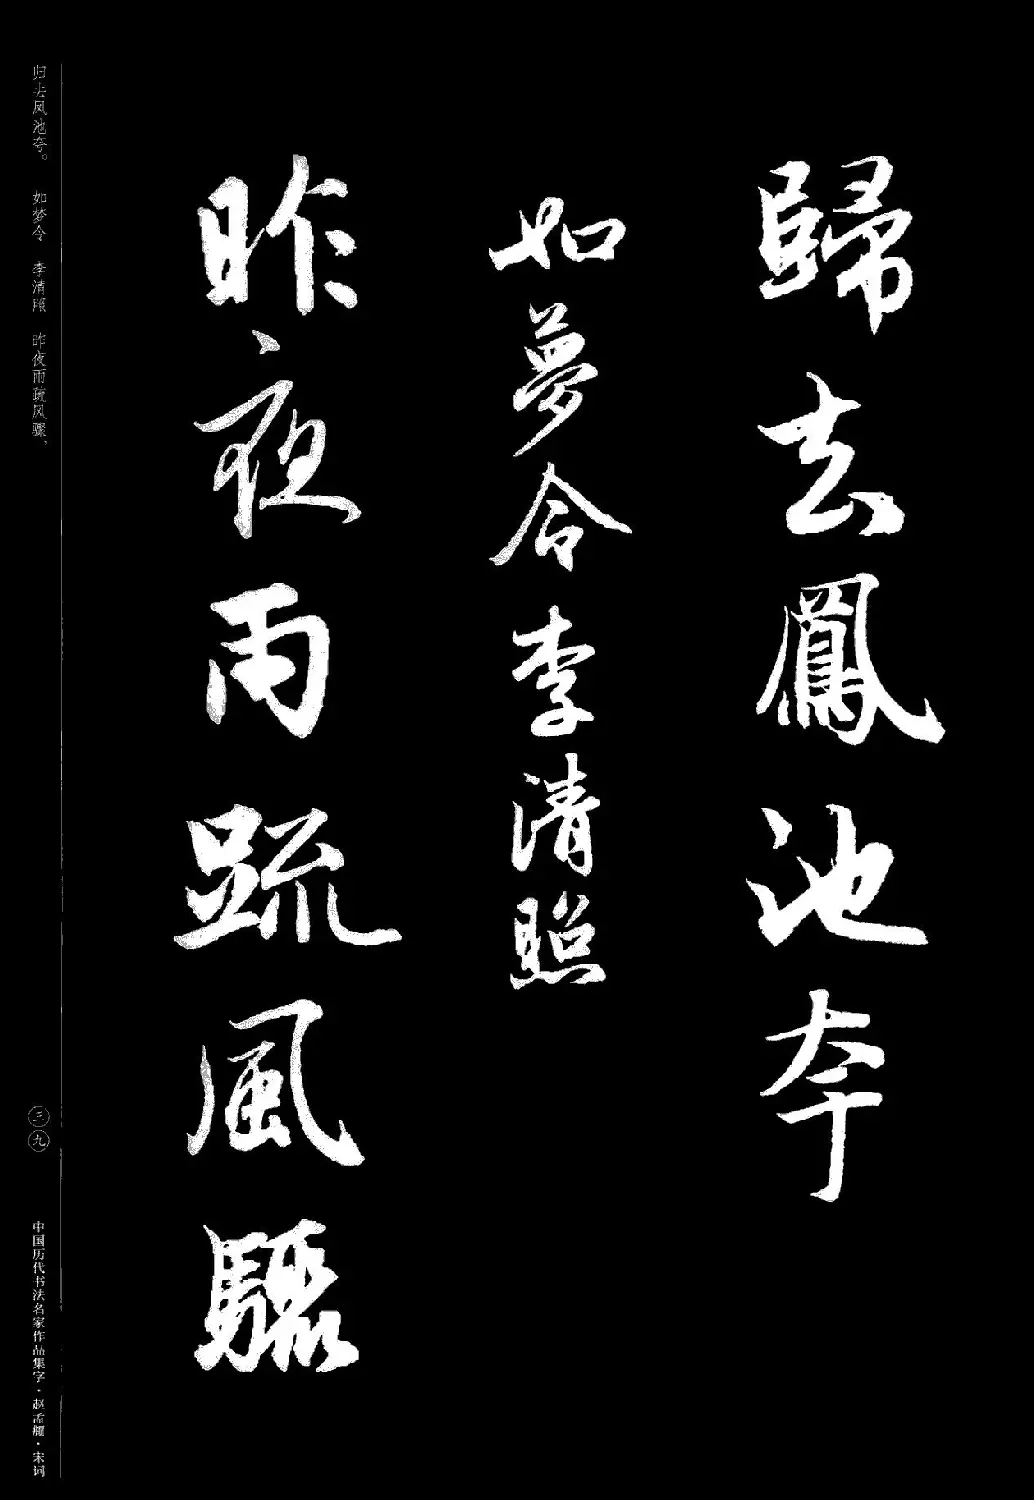 歸去鳳池夸
如夢令 李清照
昨夜雨疏風驟
归去凤池夸。 如梦令 李清照 昨夜雨疏风骤，
三九
中国历代书法名家作品集字·赵孟頫·宋词